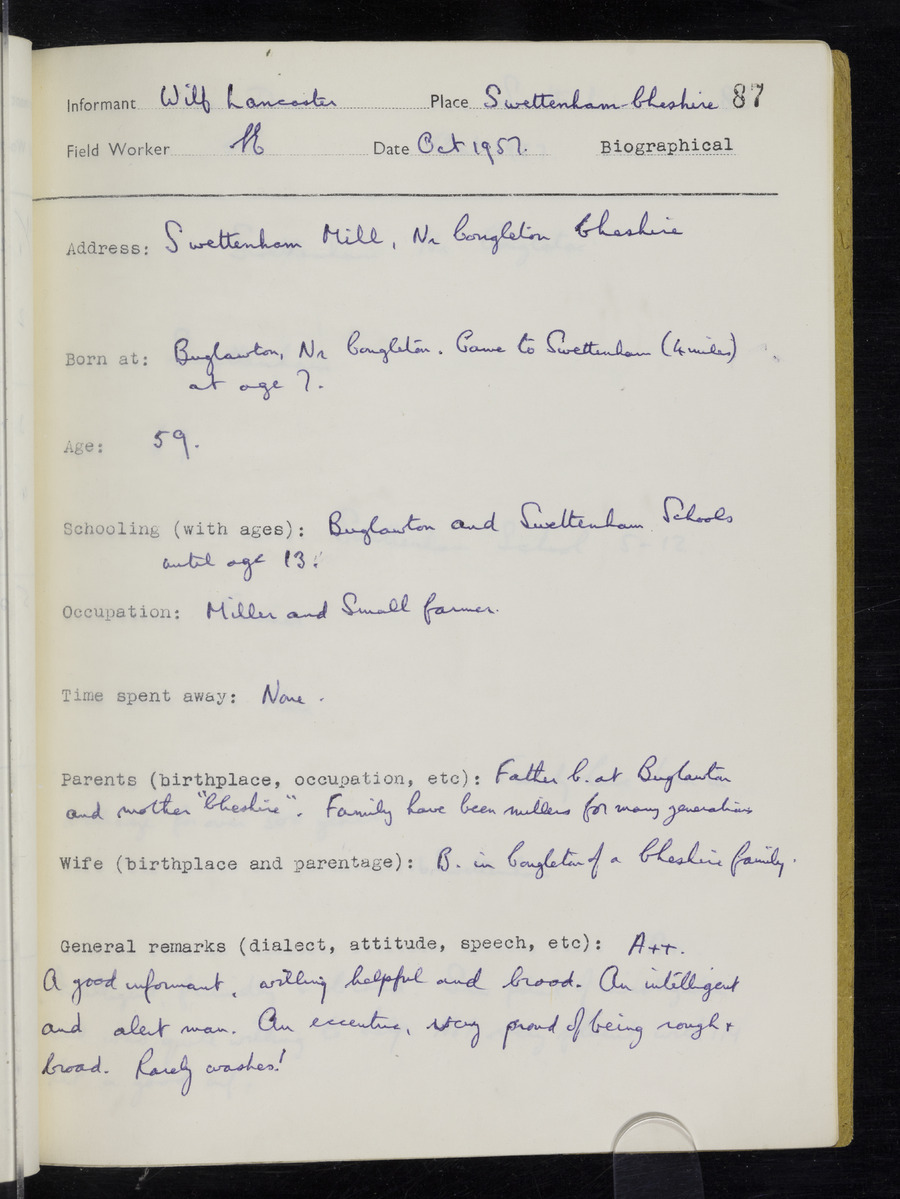 Informant Wilf Lancaster Place Swettenham-Cheshire 87
Field Worker H Date Oct 1957. Biographical
Address: Swettenham Mill, Nr Congleton Cheshire
Born at: Buglawton, Nr Congleton. Came to Swettenham (4 miles)
at age 7.
Age: 59.
Schooling (with ages): Buglawton and Swettenham Schools
until age 13.
Occupation: Miller and Small farmer.
Time spent away: None.
Parents (birthplace, occupation, etc): Father b. at Buglawton
and mother "Cheshire". Family have been millers for many generations
Wife (birthplace and parentage): B. in Congleton of a Cheshire family.
General remarks (dialect, attitude, speech, etc): A++.
A good informant, willing helpful and broad. An intelligent
and alert man. An eccentric, very proud of being rough +
broad. Rarely washes!